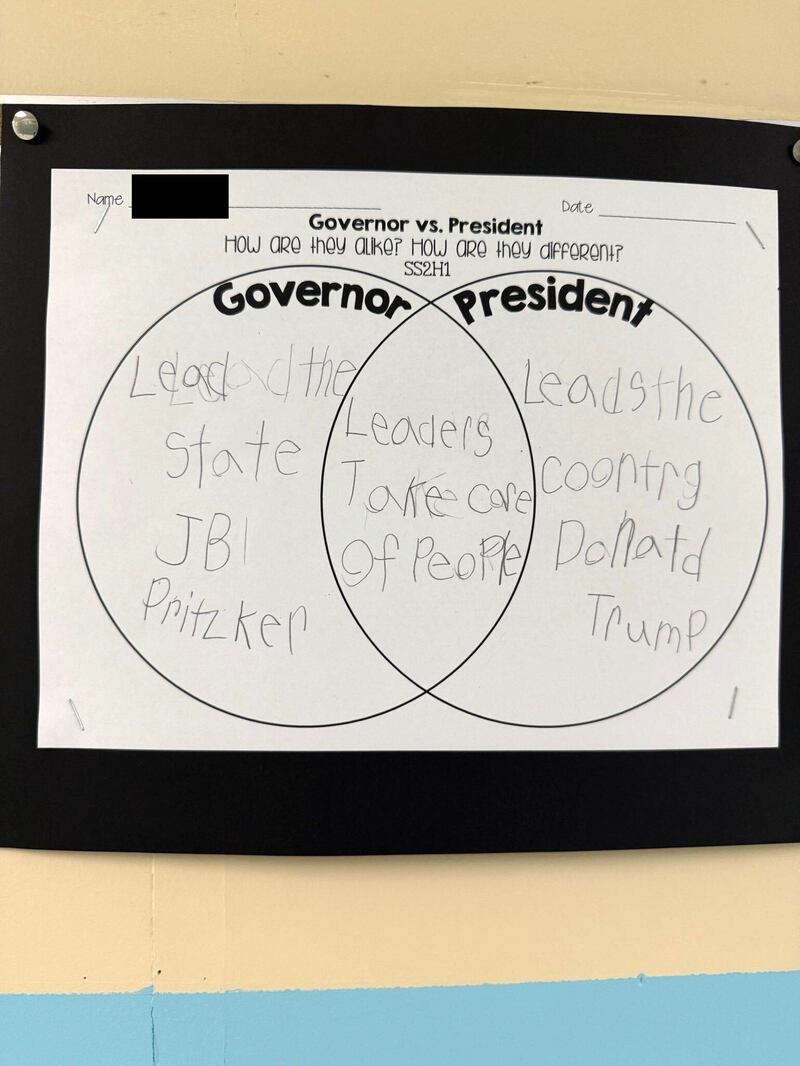 Name
Date
Governor vs. President
How are they alike? How are they different?
SS2H1
Governor
President
Lead the
State
JB
Pritzker
Leaders
Take care
Of People
Leads the
coontrg
Donatd
Trump